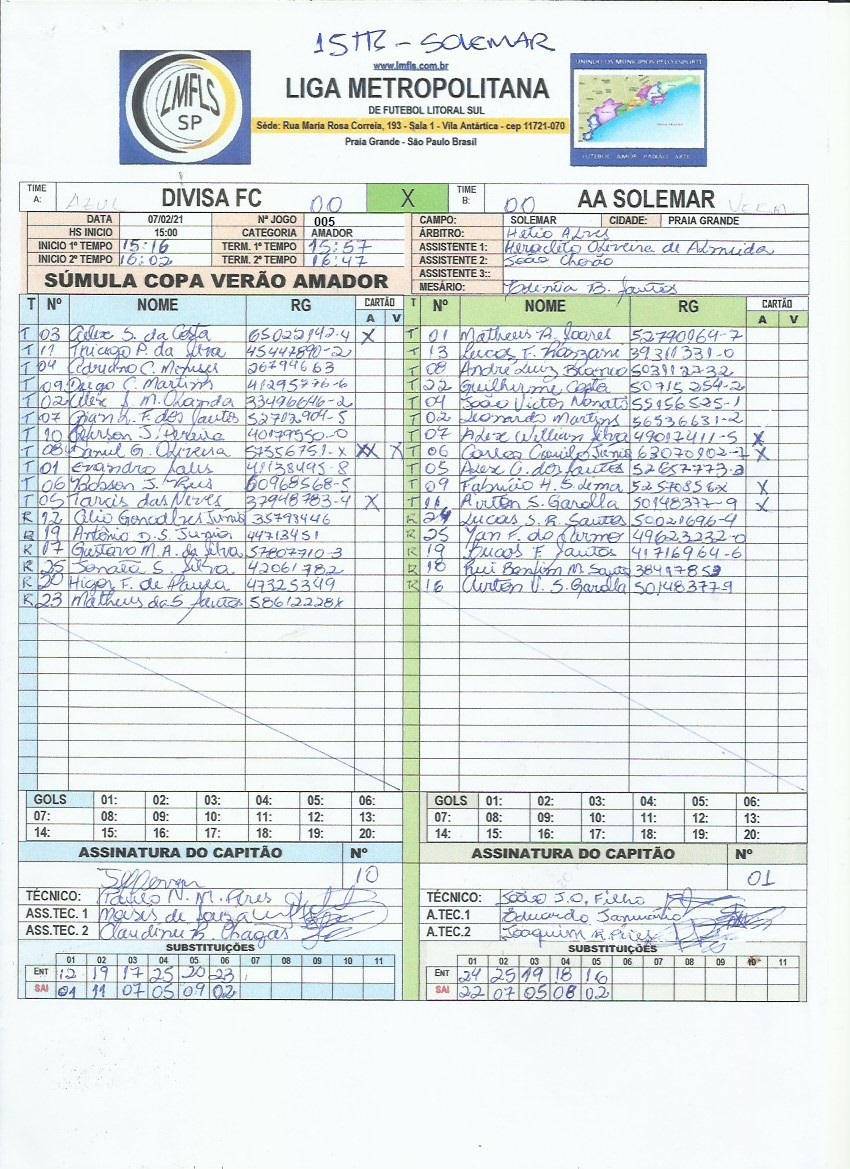 15H - SOLEMAR
www.lmfls.com.br
LMFLS SP
LIGA METROPOLITANA
DE FUTEBOL LITORAL SUL
Séde: Rua Maria Rosa Correia, 193 - Sala 1 - Vila Antártica - cep 11721-070
Praia Grande - São Paulo Brasil
UNINDO OS MUNICIPIOS PELO ESPORTE
TIME A: AZUL DIVISA FC 00 X TIME B: 00 AA SOLEMAR
DATA 07/02/21 Nº JOGO 005 CAMPO: SOLEMAR CIDADE: PRAIA GRANDE
HS INICIO 15:00 CATEGORIA AMADOR ÁRBITRO: Helio Alves
INICIO 1º TEMPO 15:16 TERM. 1º TEMPO 15:57 ASSISTENTE 1: Heraclito Oliveira de Almeida
INICIO 2º TEMPO 16:02 TERM. 2º TEMPO 16:47 ASSISTENTE 2: João
ASSISTENTE 3::
SÚMULA COPA VERÃO AMADOR MESÁRIO: B. Santos
T Nº NOME RG CARTÃO A V T Nº NOME RG CARTÃO A V
T 03 Alex S. da Costa 65022142-4 X T 01 Matheus R. Soares 52790164-7
T 11 Thiago P. da Silva 45447890-2 T 13 Lucas T.
T 04 Adriano C. 26794663 T 08 André Luiz
T 09 Diego C. Martins 41295776-6 T 22 Guilherme Costa 50715254-2
T 02 Alex S. M. 33496646-2 T 04 João Victor 55156525-1
T 07 F. dos Santos 52702904-5 T 02 Leonardo Martins 56536631-2
T 10 J. Pereira 40179550-0 T 07 Alex Willian Silva 49017411-5 X
T 08 G. Oliveira 57556751-X XX X T 06 Carlos Camilo Junio 63070902-7 X
T 01 Evandro 41138495-8 T 05 Alex C. dos Santos
T 06 Robson J. 60968568-5 T 09 Fabricio H. S. Lima X
T 05 Tarcis das Neves 37948783-4 X T Airton S. Garolla 50148377-9 X
R 12 Celio Goncalves Junio 35793446 R 24 Lucas S. R. Santos 50021696-4
R 19 Antônio D. S. Junior 44713451 R 25 Yan F. do 49623232-0
R 17 Gustavo M. A. da Silva 57807710-3 R 19 Lucas F. Santos 41716964-6
R 25 S. Silva 42061782 R 18 Rui Bonfim M. Santo
R 20 Higor F. de Paula 47325349 R 16 Airton V. S. Garolla 501483779
R 23 Matheus da S Santos 58612228X
GOLS 01: 02: 03: 04: 05: 06: GOLS 01: 02: 03: 04: 05: 06:
07: 08: 09: 10: 11: 12: 13: 07: 08: 09: 10: 11: 12: 13:
14: 15: 16: 17: 18: 19: 20: 14: 15: 16: 17: 18: 19: 20:
ASSINATURA DO CAPITÃO Nº ASSINATURA DO CAPITÃO Nº
10 01
TÉCNICO: N. M. Pires TÉCNICO: João J.O. Filho
ASS.TEC. 1 Moises de Souza A.TEC.1 Eduardo Januario
ASS.TEC. 2 Claudinei R. Chagas A.TEC.2 Joaquim R. Pires
SUBSTITUIÇÕES SUBSTITUIÇÕES
01 02 03 04 05 06 07 08 09 10 11 01 02 03 04 05 06 07 08 09 10 11
ENT 12 19 17 25 20 23 ENT 24 25 19 18 16
SAI 01 11 07 05 09 02 SAI 22 07 05 08 02